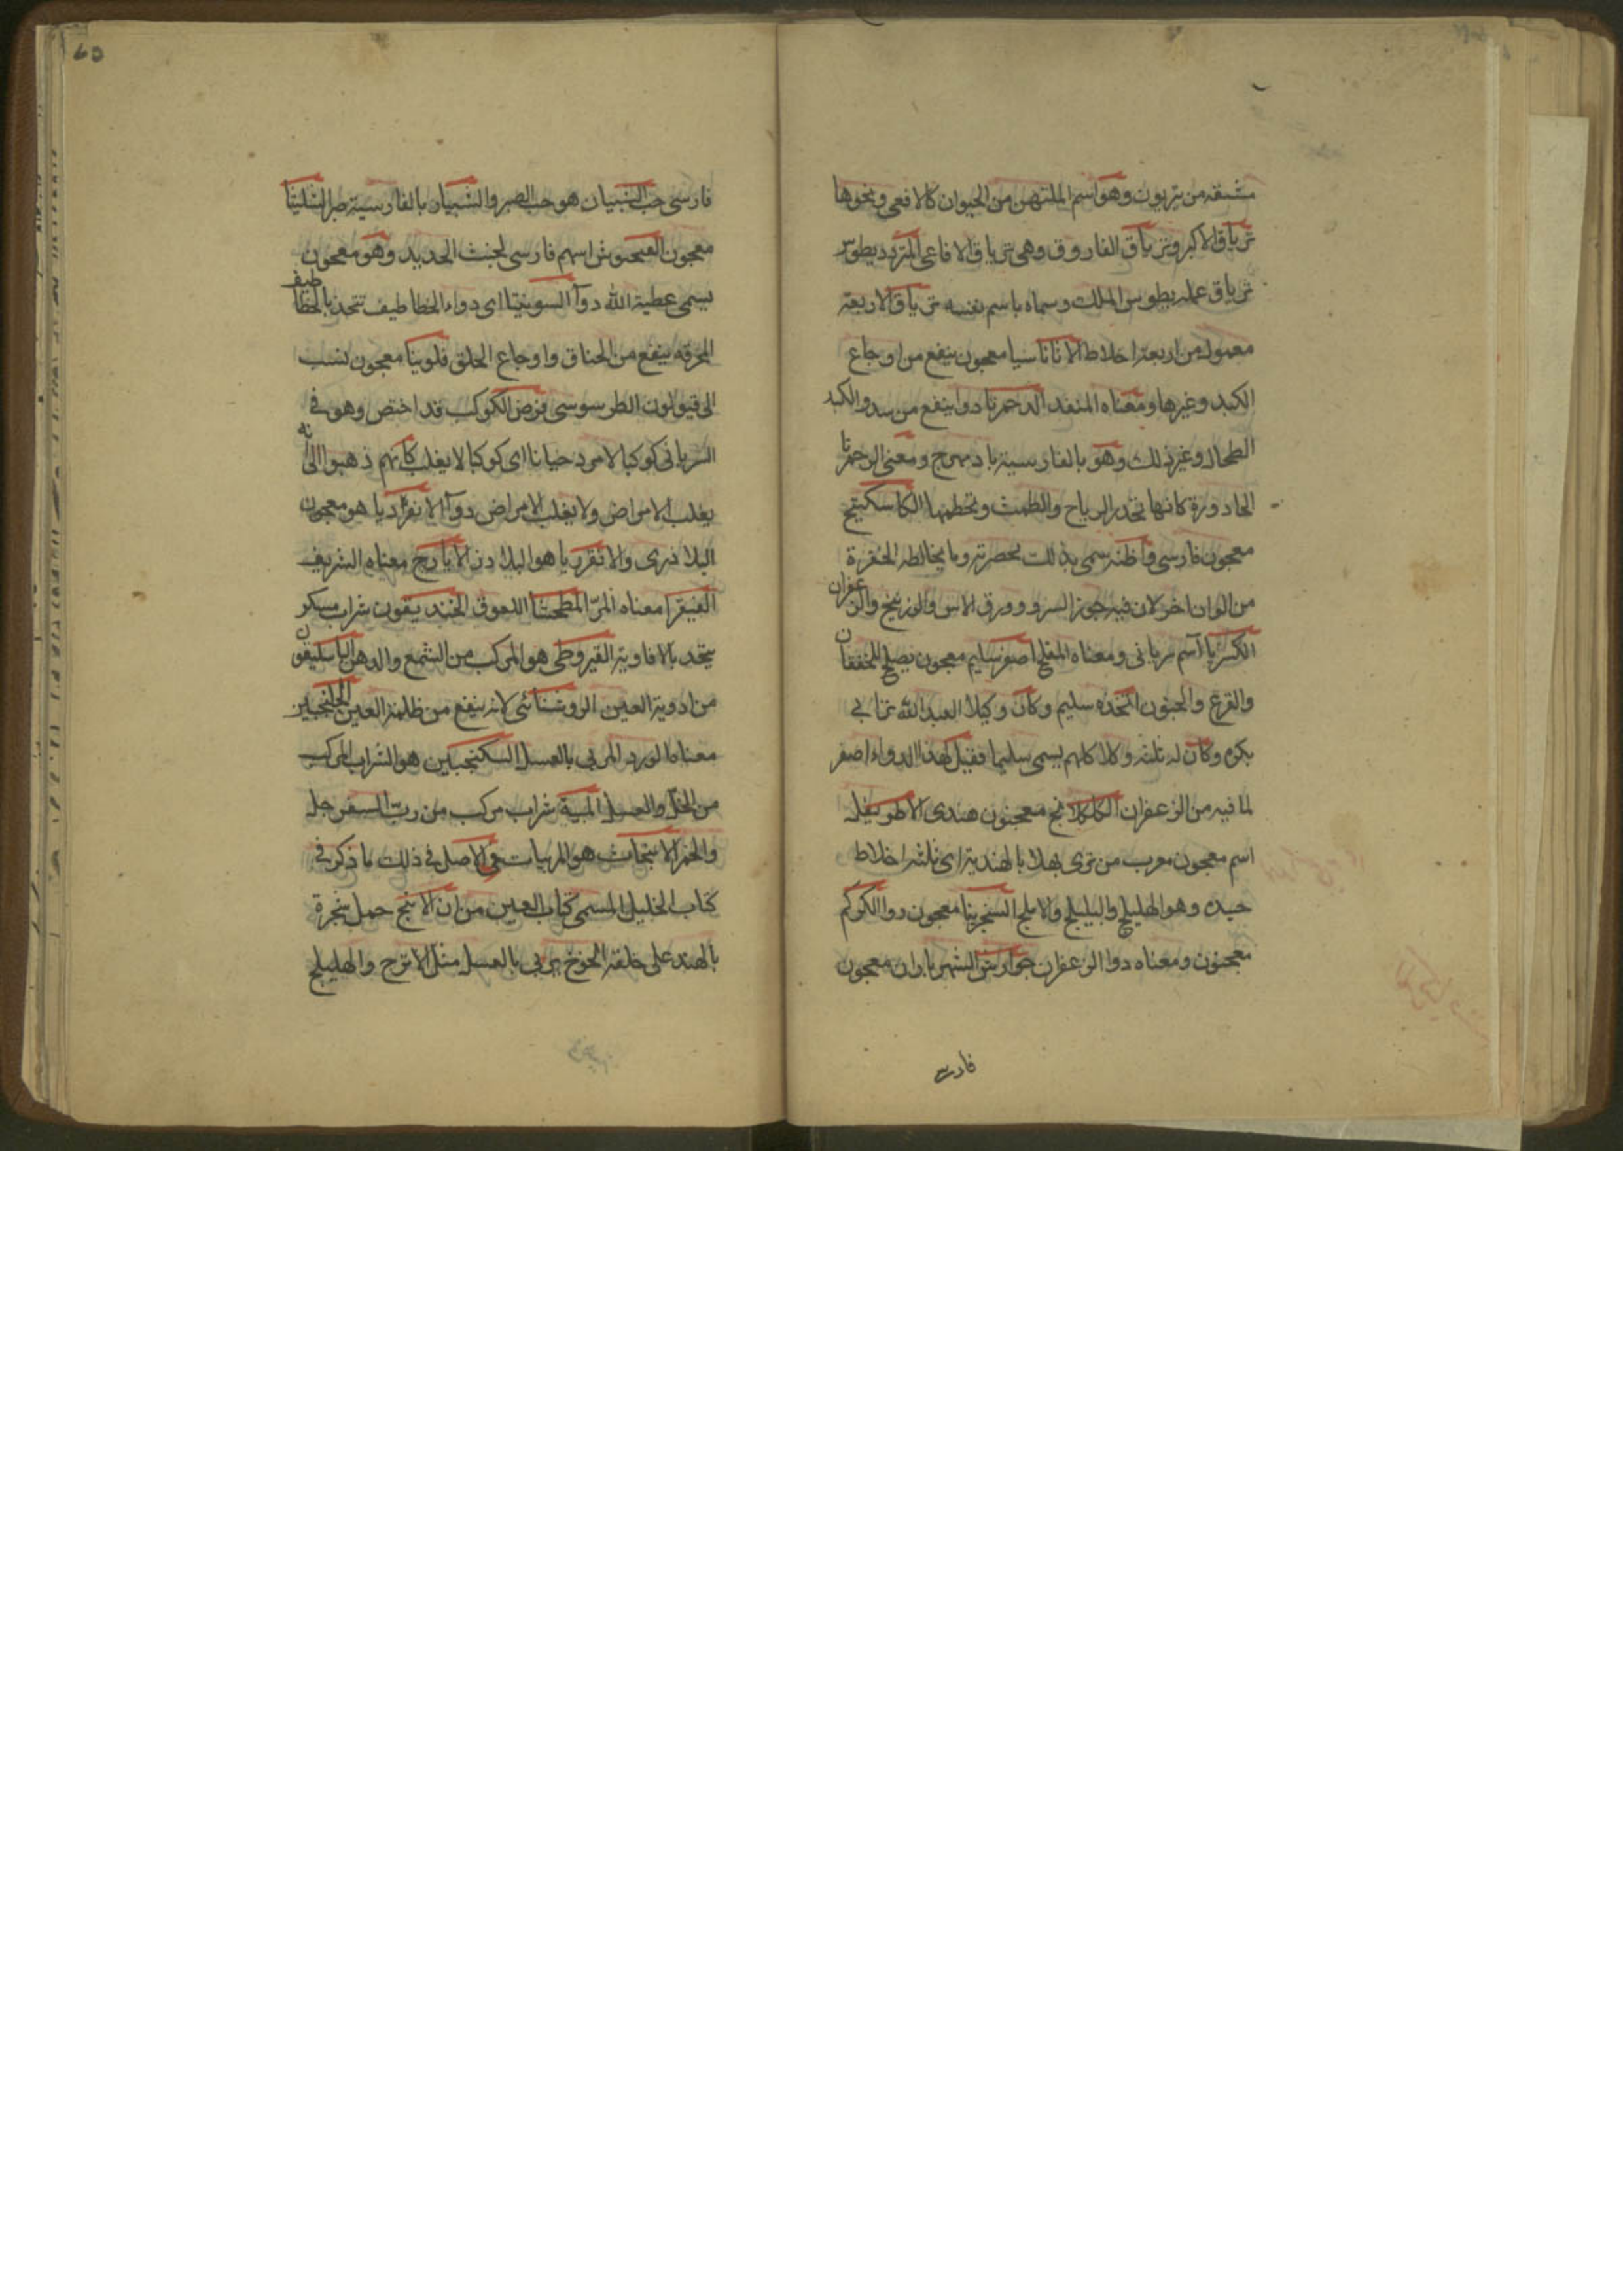 مشتقه من تريون وهو اسم الملتهن من الحيوان كالافعى ونحوها
ترياق الاكبر وترياق الفاروق وهى ترياق الافاعى المثرديطوس
ترياق عمله يطوس الملك وسماه باسم نفسه ترياق الاربعة
معمول من اربعة اخلاط الاناناسيا معجون ينفع من اوجاع
الكبد وغيرها ومعناه المنقذ الدحمرثا دوا ينفع من سدد الكبد
الطحال وغير ذلك وهو بالفارسية باد مهرج ومعنى الدحمرثا
الحادورة كانها تحدر الرياح والطمث وتحطمها الكاسكبينج
معجون فارسى واظنه سمى بذلك لخضرته وما يخالطه الخضرة
من الوان اخر لان فيه جوز السرو وورق الاس والزرنيخ والزعفران
الكسرثا اسم سريانى ومعناه المفلح اصفر سليم معجون يصلح للخفقان
والقرع والجنون اتخذه سليم وكان وكيلا لعبد الله بن ابى
بكره وكان له ثلثة وكلا كلهم يسمى سليما فقيل لهذا الدواء اصفر
لما فيه من الزعفران الكلكلانج معجون هندى الاطريفله
اسم معجون معرب من ترى بهلا بالهندية اى ثلثه اخلاط
حيده وهو الهليلج والبليلج والاملج السنجرينا معجون دوا الكركم
معجون ومعناه دوا الزعفران جوارش الشهرياران معجون
فارسى
فارسى حب الشبيار هو حب الصبر والشبيار بالفارسية صبر الشليثا
معجون الفنجنوش اسم فارسى لخبث الحديد وهو معجون
يسمى عطية الله دوآ السوينيتا اى دواء الخطاطيف تتخذ بالخطاطيف
المحرقه ينفع من الخناق واوجاع الحلق فلوينا معجون نسب
الى فيولون الطرسوسى قرص الكوكب قد اختص وهو فى
السريانى كوكبا لامرد حيانا اى كوكبا لا يغلب كانهم ذهبوا الى انه
يغلب الامراض ولا يغلب الامراض دوآ الانقرديا هو معجون
البلاذرى والانقرديا هو البلاذر الايارج معناه الشريف
الفيقرا معناه المر المطحثا اللعوق الخنديقون شراب مسكر
يتخذ بالافاويه القيروطى هو المركب من الشمع والدهن الباسليقون
من ادوية العين الروشنائى لانه ينفع من ظلمة العين الجلنجبين
معناه الورد المربى بالعسل السكنجبين هو الشراب المركب
من الخل والعسل الميبة شراب مركب من رب السفرجل
والخمر الانبجات هو المربيات فى الاصل فى ذلك ما ذكر فى
كتاب الخليل المسمى كتاب العين من ان الانبج حمل شجرة
بالهند على خلقة الخوخ يربى بالعسل مثل الاترج والهليلج